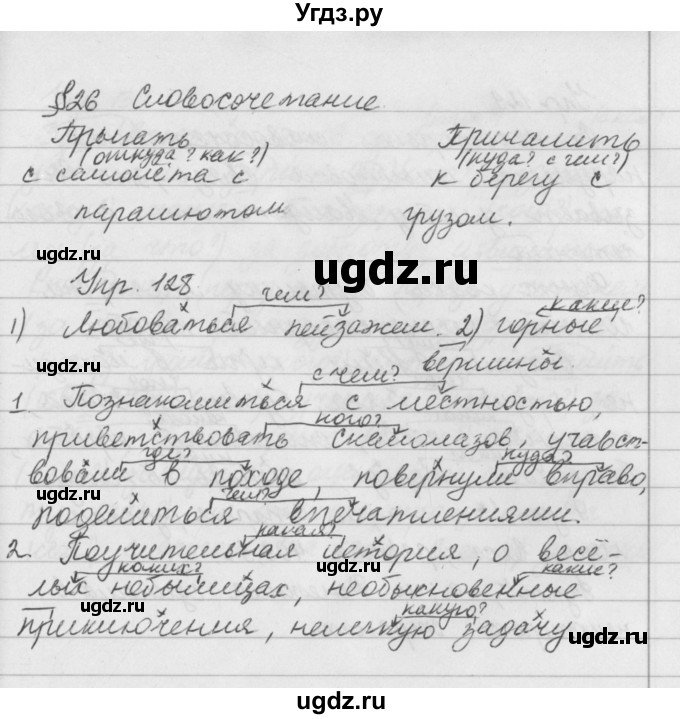 Угдз.ру
§26 Словосочетание.
Прыгать Причалить
(откуда? как?) (куда? с чем?)
с самолёта с к берегу с
парашютом грузом.
ugdz.ru ugdz.ru
Упр. 128
чем? какие?
1) Любоваться пейзажем. 2) горные
вершины.
ugdz.ru
с чем?
1 Познакомиться с местностью,
кого?
приветствовать скалолазов, учавст-
где? куда?
вовали в походе, повернули вправо,
ugdz.ru ugdz.ru
чем?
поделиться впечатлениями.
какая?
2. Поучительная история, о весё-
каких? какие?
лых небылицах, необыкновенные
ugdz.ru ugdz.ru
какую?
приключения, нелегкую задачу
ugdz.ru